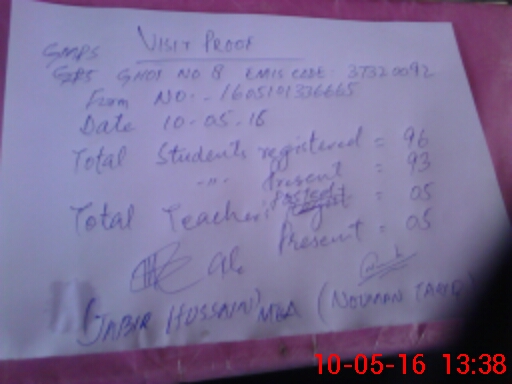 VISIT PROOF
GMPS
GHOS NO 8 EMIS CODE: 37320092
Form NO:- 1605101336665
Date 10-05-16
Total Students registered = 96
-"- Present = 93
Total Teachers Posted = 05
Present = 05
(JABIR HUSSAIN) MEA (NOUMAN TARIQ)
10-05-16 13:38